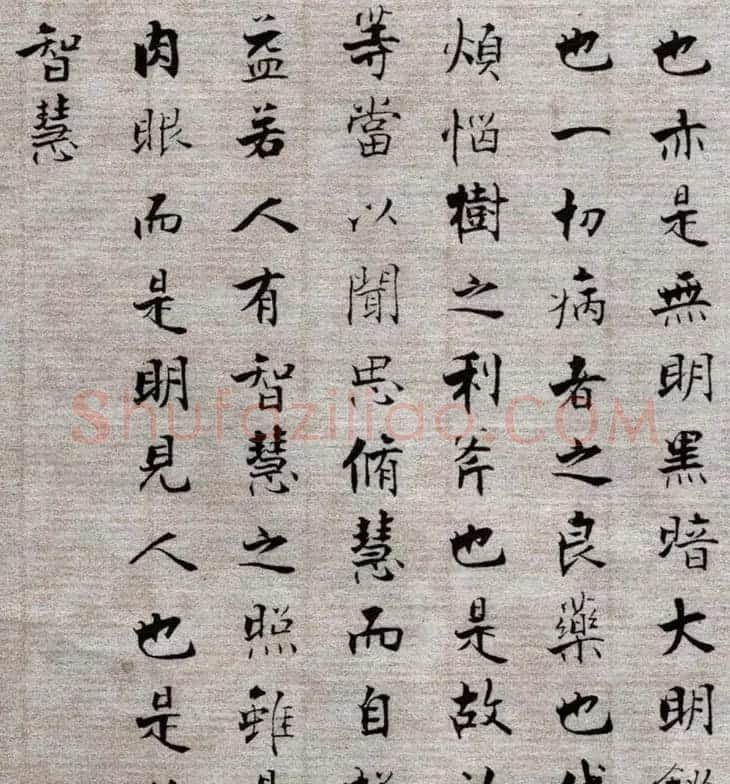 也亦是無明黑暗大明
也一切病者之良藥也
煩惱樹之利斧也是故
等當以聞思脩慧而自
益若人有智慧之照雖
肉眼而是明見人也是
智慧
Shufaziliao.COM